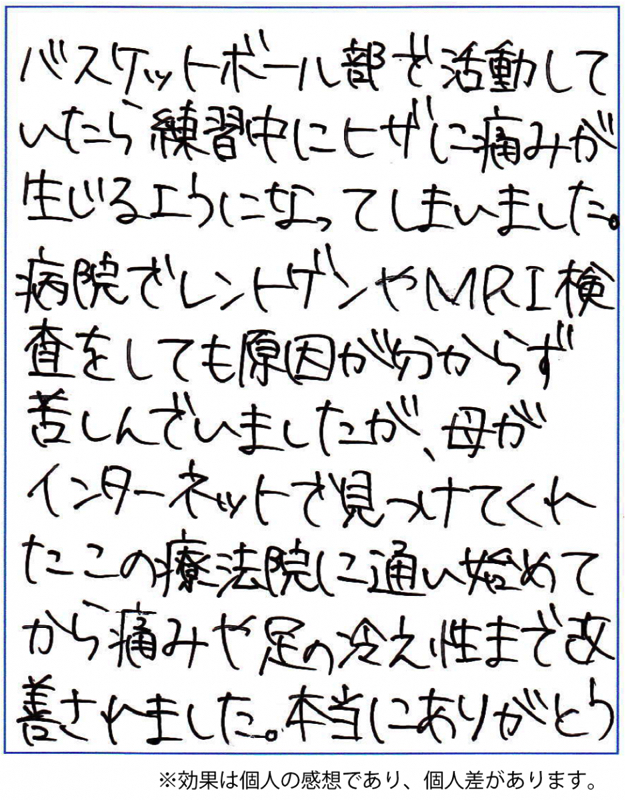 バスケットボール部で活動して
いたら練習中にヒザに痛みが
生じるようになってしまいました。
病院でレントゲンやMRI検
査をしても原因が分からず
苦しんでいましたが、母が
インターネットで見つけてくれ
たこの療法院に通い始めて
から痛みや足の冷え性まで改
善されました。本当にありがとう
※効果は個人の感想であり、個人差があります。